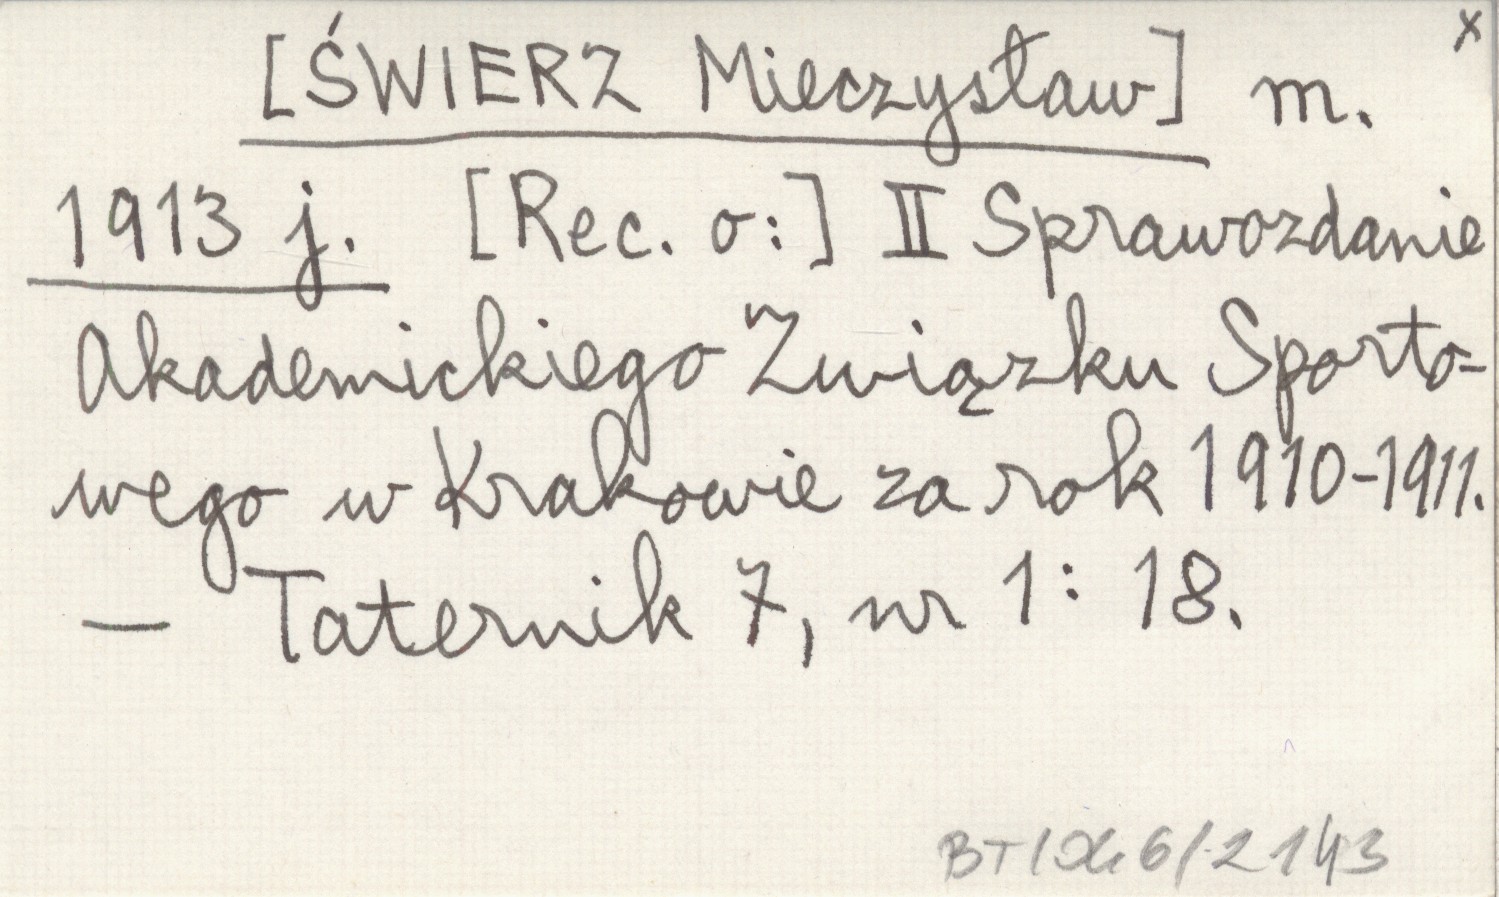 x
[ŚWIERZ Mieczysław] m.
1913 j. [Rec. o:] II Sprawozdanie
Akademickiego Związku Sporto-
wego w Krakowie za rok 1910-1911.
— Taternik 7, nr 1: 18.
2143